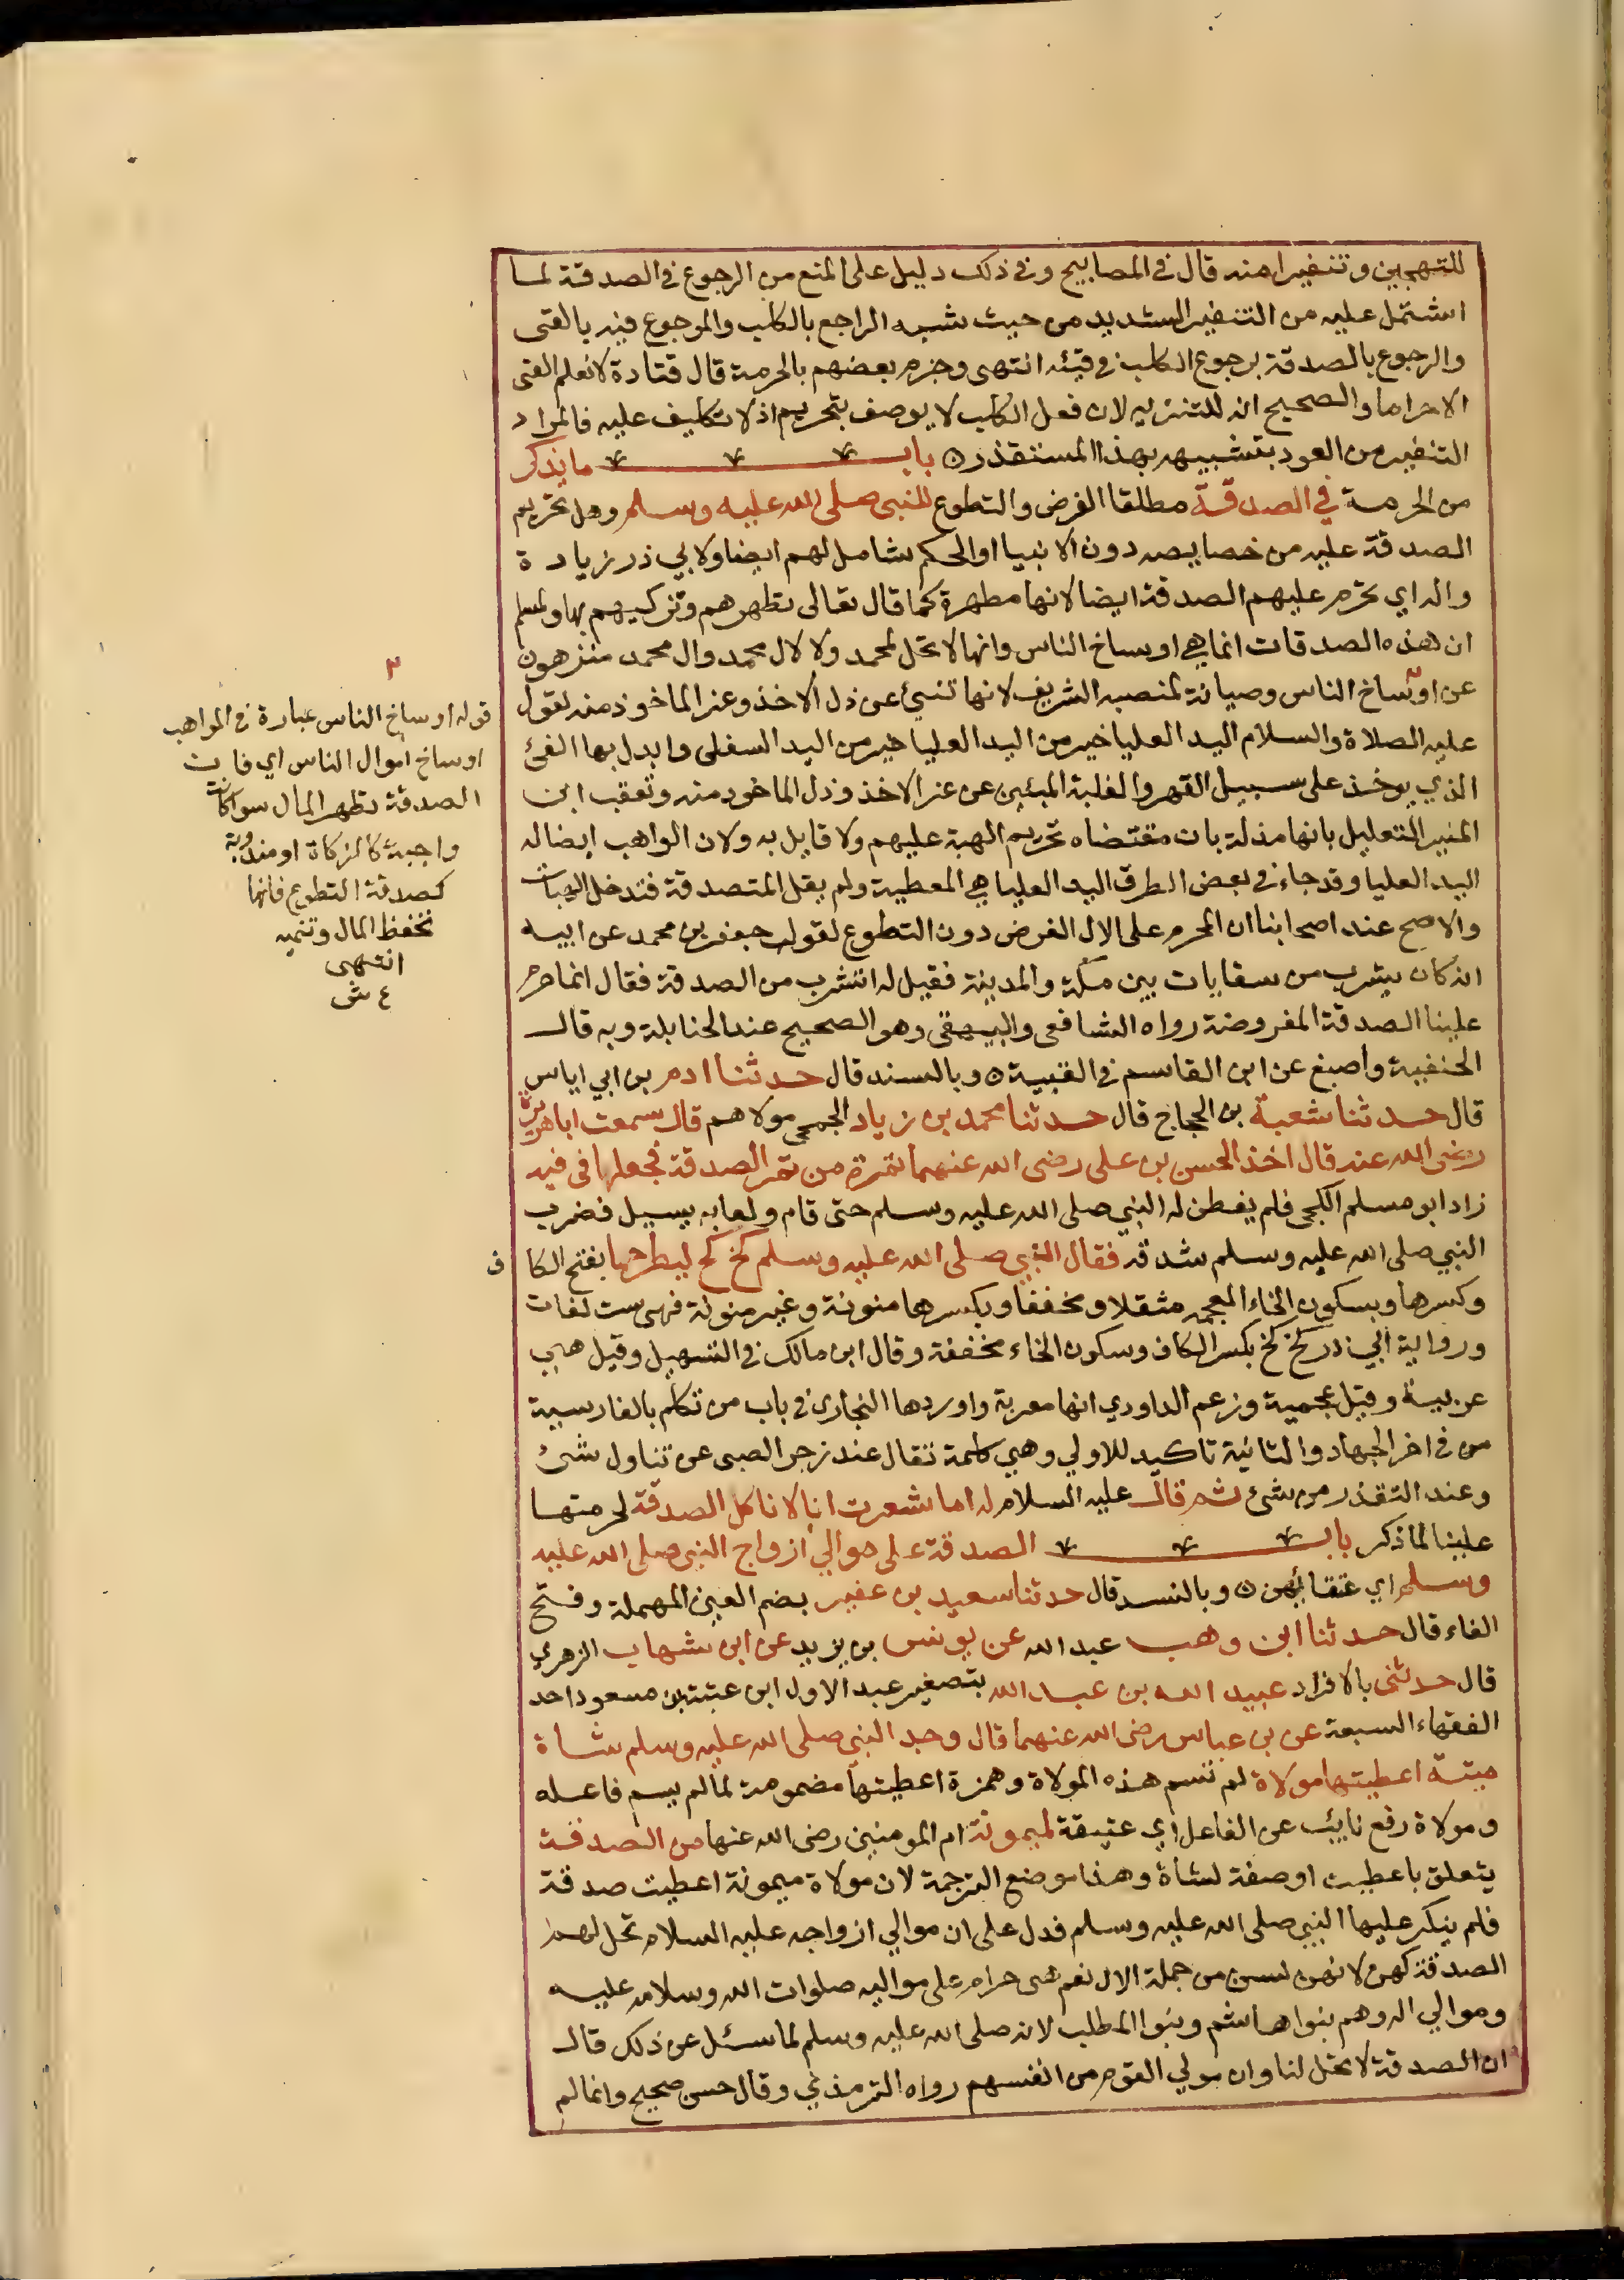 للتهجين وتنفيرا منه قال في المصابيح وفي ذلك دليل على المنع من الرجوع في الصدقة لما
اشتمل عليه من التنفير الشديد من حيث شبه الراجع بالكلب والمرجوع فيه بالقئ
والرجوع بالصدقة برجوع الكلب في قيئه انتهى وجزم بعضهم بالحرمة قال قتادة لا نعلم القئ
الا حراما والصحيح انه للتنزيه لان فعل الكلب لا يوصف بتحريم اذ لا تكليف عليه فالمراد
التنفير من العود بتشبيهه بهذا المستقذر ٥ باب ما يذكر
من الحرمة في الصدقة مطلقا الفرض والتطوع للنبي صلى الله عليه وسلم وهل تحريم
الصدقة عليه من خصايصه دون الانبيا او الحكم شامل لهم ايضا ولابي ذر زيادة
واله اي تحرم عليهم الصدقة ايضا لانها مطهرة كما قال تعالى تطهرهم وتزكيهم بها ولمسلم
ان هذه الصدقات انما هي اوساخ الناس وانها لا تحل لمحمد ولا لال محمد وال محمد منزهون
عن اوساخ الناس وصيانة لمنصبه الشريف لانها تنبئ عن ذل الاخذ وعز الماخوذ منه لقوله
عليه الصلاة والسلام اليد العليا خير من اليد العليا خير من اليد السفلى وابدل بها الفئ
الذي يوخذ على سبيل القهر والغلبة المبنئين عن عز الاخذ وذل الماخوذ منه وتعقب ابن
المنير التعليل بانها مذلة بان مقتضاه تحريم الهبة عليهم ولا قايل به ولان الواهب ايضا له
اليد العليا وقد جاء في بعض الطرق اليد العليا هي المعطية ولم يقل المتصدقة فتدخل الهبات
والاصح عند اصحابنا ان المحرم على الال الفرض دون التطوع لقول جعفر بن محمد عن ابيه
انه كان يشرب من سقايات بين مكة والمدينة فقيل له اتشرب من الصدقة فقال انما حرم
علينا الصدقة المفروضة رواه الشافعي والبيهقي وهو الصحيح عند الحنابلة وبه قال
الحنفية واصبغ عن ابن القاسم في العتبية ٥ وبالسند قال حدثنا ادم بن ابي اياس
قال حدثنا شعبة بن الحجاج قال حدثنا محمد بن زياد الجمحي مولاهم قال سمعت ابا هريرة
رضي الله عنه قال اخذ الحسن بن علي رضي الله عنهما تمرة من تمر الصدقة فجعلها في فيه
زاد ابو مسلم الكجي فلم يفطن له النبي صلى الله عليه وسلم حتى قام ولعابه يسيل فضرب
النبي صلى الله عليه وسلم شدقه فقال النبي صلى الله عليه وسلم كخ كخ ليطرحها بفتح الكاف
وكسرها وبسكون الخاء المعجمه مثقلا ومخففا وبكسرها منونة وغير منونة فهي ست لغات
ورواية ابي ذر كخ كخ بكسر الكاف وسكون الخاء مخففة وقال ابن مالك في التسهيل وقيل هي
عربية وقيل عجمية وزعم الداودي انها معربة واوردها البخاري في باب من تكلم بالفارسية
من في اخر الجهاد والثانية تاكيد للاولي وهي كلمة تقال عند زجر الصبي عن تناول شئ
وعند التقذر من شئ ثم قال عليه السلام له اما شعرت انا لا ناكل الصدقة لحرمتها
علينا لما ذكر باب الصدقة على موالي ازواج النبي صلى الله عليه
وسلم اي عتقائهن ٥ وبالسند قال حدثنا سعيد بن عفير بضم العين المهملة وفتح
الفاء قال حدثنا ابن وهب عبد الله عن يونس بن يزيد عن ابن شهاب الزهري
قال حدثني بالافراد عبيد الله بن عبد الله بتصغير عبد الاول ابن عتبة بن مسعود احد
الفقهاء السبعة عن بن عباس رضي الله عنهما قال وجد النبي صلى الله عليه وسلم شاة
ميتة اعطيتها مولاة لم تسم هذه المولاة وهمزة اعطيتها مضمومة لما لم يسم فاعله
ومولاة رفع نايب عن الفاعل اي عتيقة لميمونة ام المومنين رضي الله عنها من الصدقة
يتعلق باعطيت او صفة لشاة وهذا موضع الترجمة لان مولاة ميمونة اعطيت صدقة
فلم ينكر عليها النبي صلى الله عليه وسلم فدل على ان موالي ازواجه عليه السلام تحل لهم
الصدقة كهن لانهن لسن من جملة الال نعم هي حرام على مواليه صلوات الله وسلامه عليه
وموالي اله وهم بنوا هاشم وبنوا المطلب لانه صلى الله عليه وسلم لما سئل عن ذلك قال
ان الصدقة لا تحل لنا وان مولي القوم من انفسهم رواه الترمذي وقال حسن صحيح وانما لم
قوله اوساخ الناس عبارة في المواهب
اوساخ اموال الناس اي فان
الصدقة تطهر المال سوا كانت
واجبة كالزكاة او مندوبة
كصدقة التطوع فانها
تحفظ المال وتنميه
انتهى
ع ش